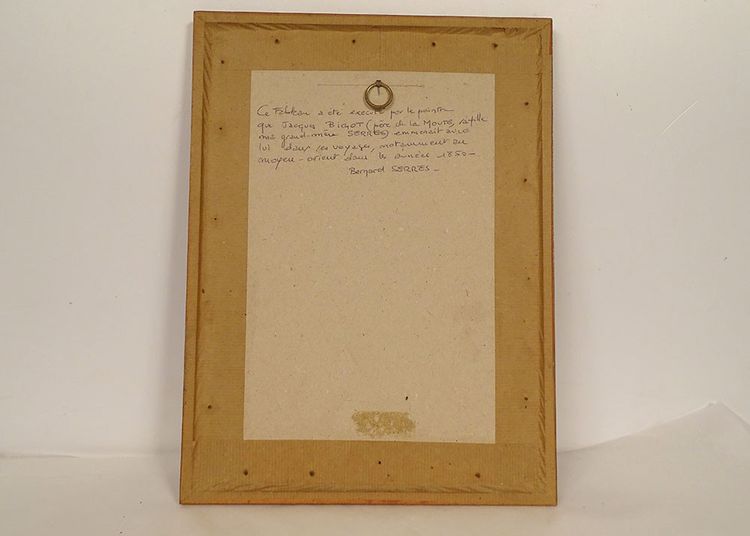 Ce Tableau a été exécuté par le peintre
que Jacques BIGOT (père de la MOUTE, sa fille
ma grand-mère SERRES) emmenait avec
lui dans ses voyages, notamment au
moyen-orient dans les années 1850-
Bernard SERRES-